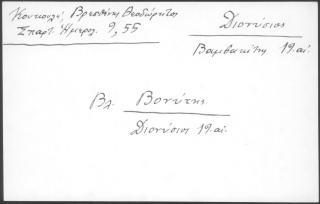 Κουκουλέ, Βρεσθένης Θεοδώρητος
Σπαρτ. Ημερολ. 9, 55
Διονύσιος
Βαμβακίτης 19. αι.
Βλ. Βονύτης
Διονύσιος 19. αι.